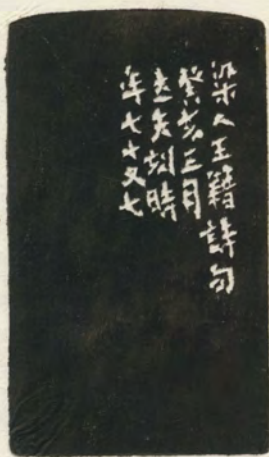 梁人王籍詩句
癸亥三月
刻時
年七十又七